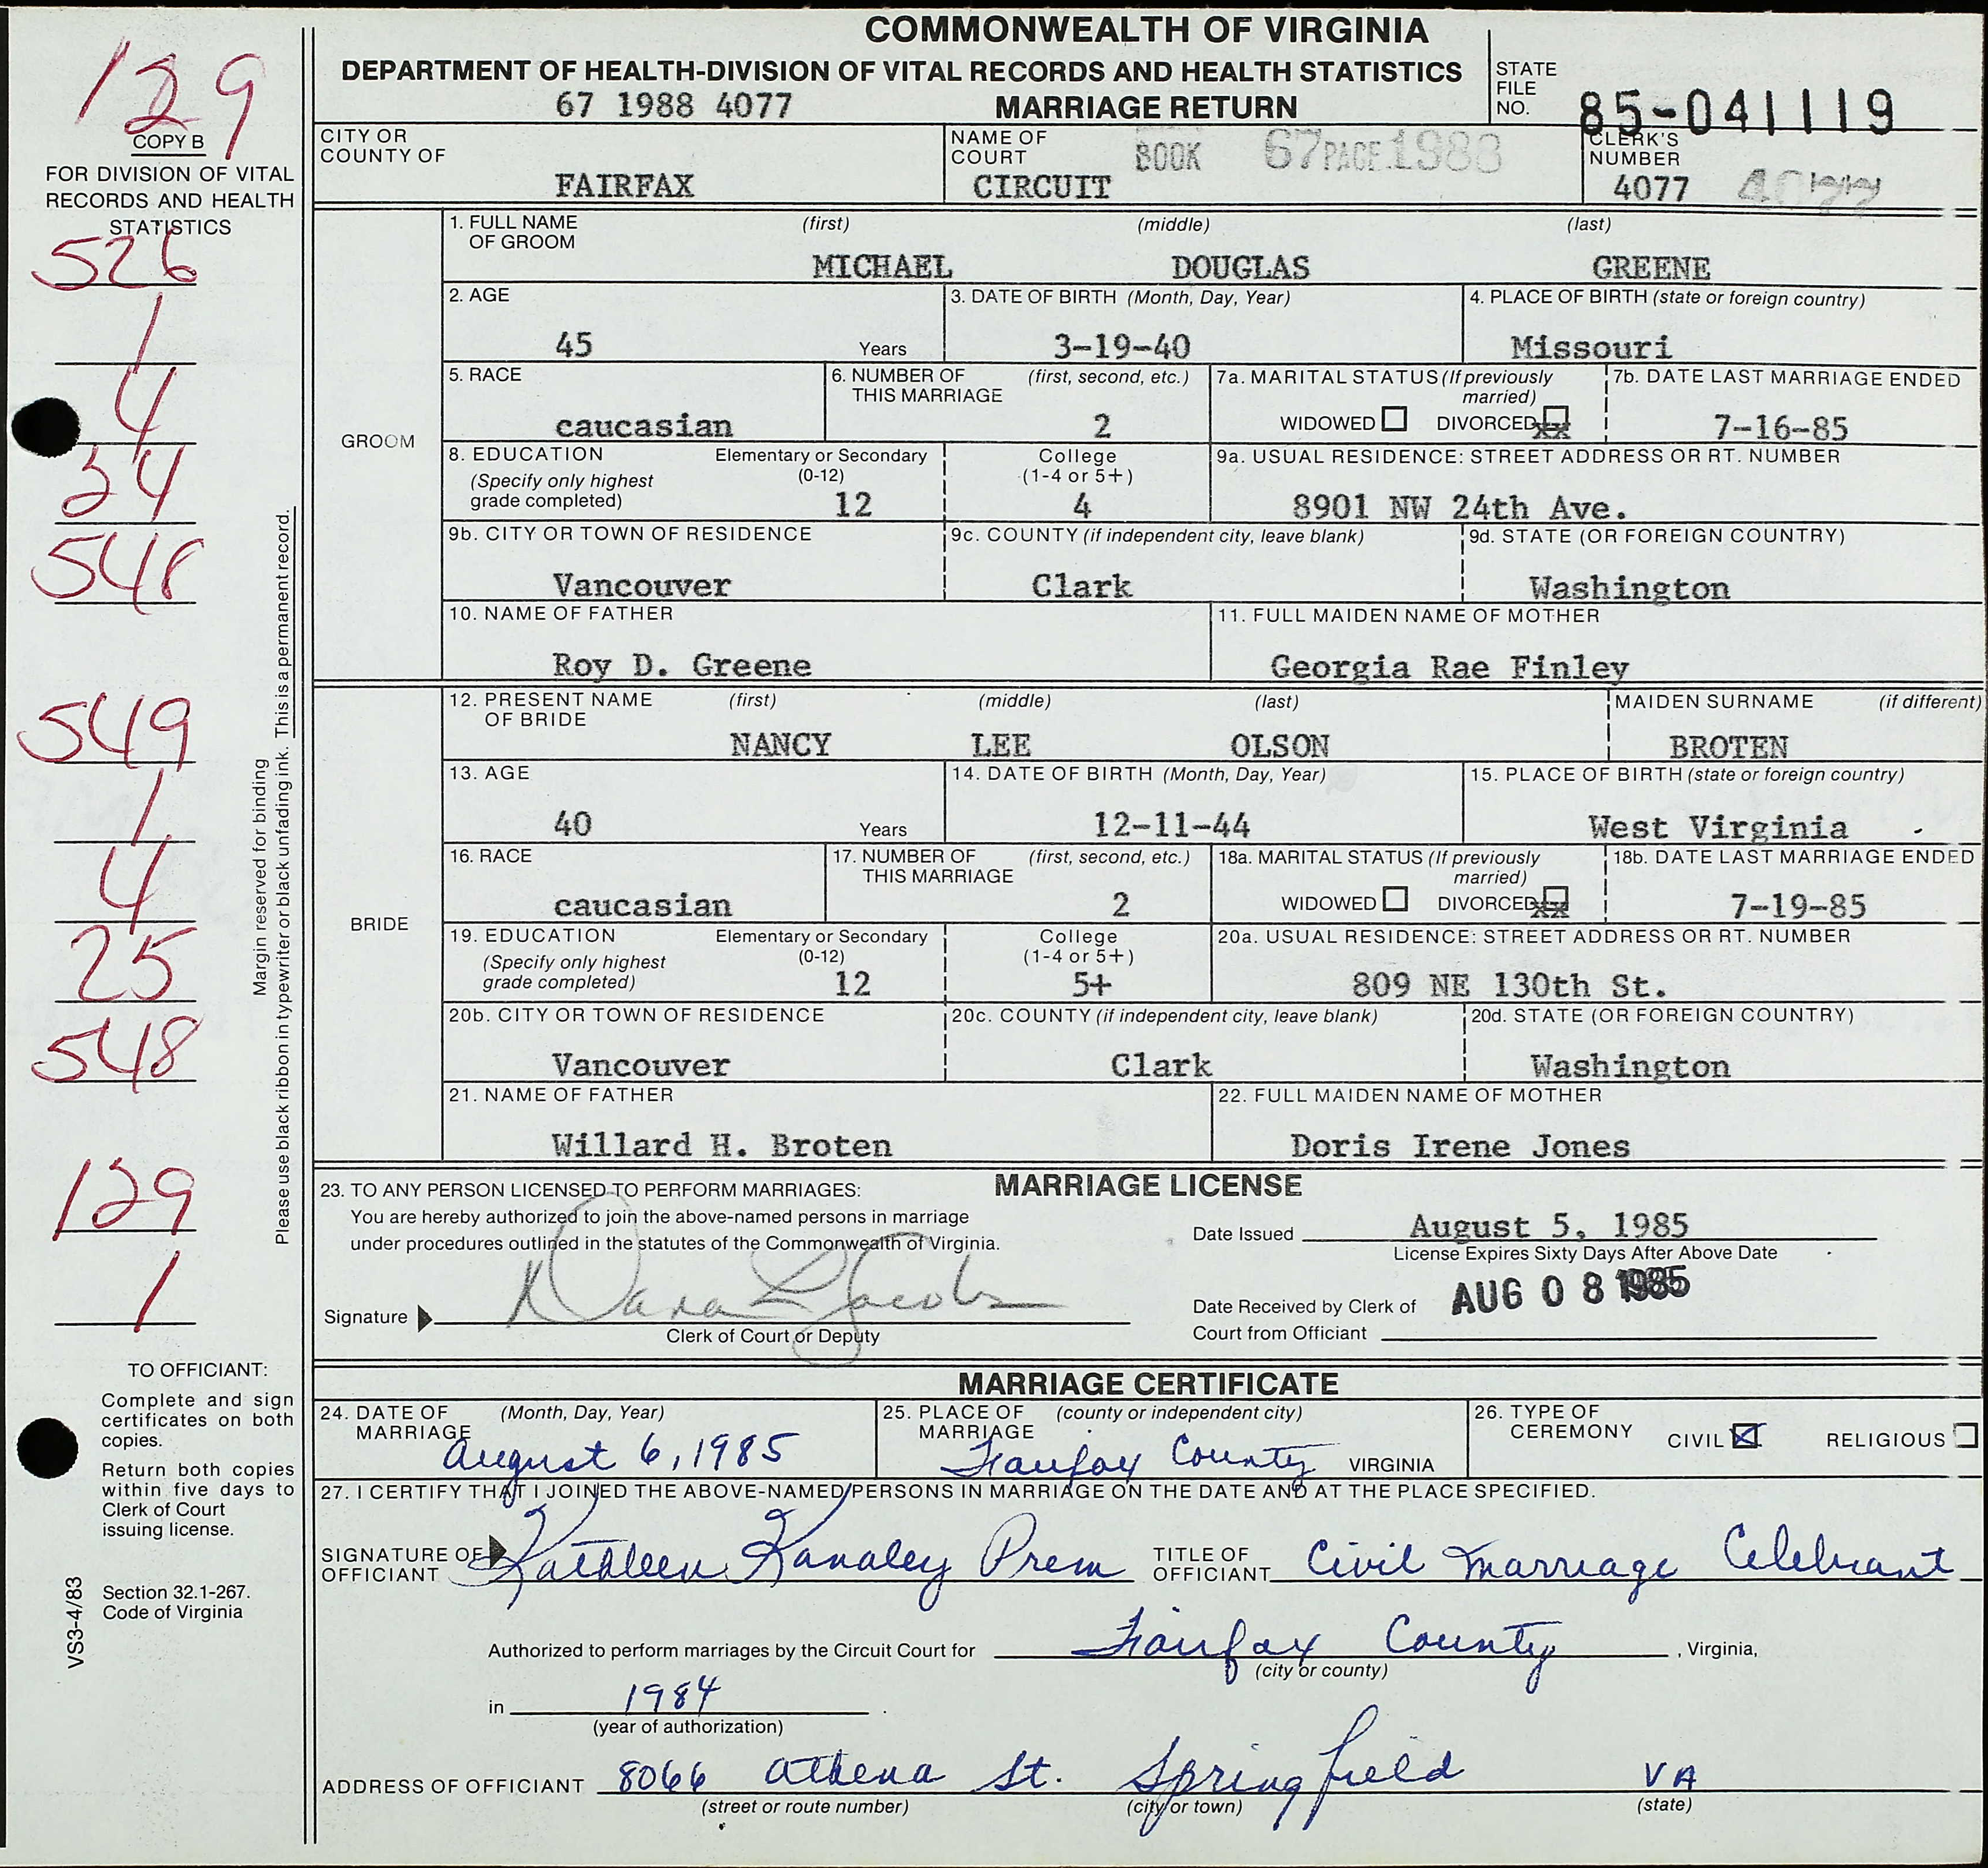 COMMONWEALTH OF VIRGINIA
DEPARTMENT OF HEALTH-DIVISION OF VITAL RECORDS AND HEALTH STATISTICS
67 1988 4077 MARRIAGE RETURN
STATE FILE NO. 85-041119
129
COPY B
FOR DIVISION OF VITAL
RECORDS AND HEALTH
STATISTICS
526
1
4
34
548
549
1
4
25
548
129
1
Margin reserved for binding
Please use black ribbon in typewriter or black unfading ink. This is a permanent record.
TO OFFICIANT:
Complete and sign
certificates on both
copies.
Return both copies
within five days to
Clerk of Court
issuing license.
Section 32.1-267.
Code of Virginia
VS3-4/83
CITY OR COUNTY OF FAIRFAX
NAME OF COURT CIRCUIT BOOK 67 PAGE 1988
CLERK'S NUMBER 4077 4077
GROOM
1. FULL NAME OF GROOM (first) (middle) (last)
MICHAEL DOUGLAS GREENE
2. AGE 45 Years
3. DATE OF BIRTH (Month, Day, Year) 3-19-40
4. PLACE OF BIRTH (state or foreign country) Missouri
5. RACE caucasian
6. NUMBER OF THIS MARRIAGE (first, second, etc.) 2
7a. MARITAL STATUS (If previously married) WIDOWED DIVORCED xx
7b. DATE LAST MARRIAGE ENDED 7-16-85
8. EDUCATION (Specify only highest grade completed) Elementary or Secondary (0-12) 12
College (1-4 or 5+) 4
9a. USUAL RESIDENCE: STREET ADDRESS OR RT. NUMBER 8901 NW 24th Ave.
9b. CITY OR TOWN OF RESIDENCE Vancouver
9c. COUNTY (if independent city, leave blank) Clark
9d. STATE (OR FOREIGN COUNTRY) Washington
10. NAME OF FATHER Roy D. Greene
11. FULL MAIDEN NAME OF MOTHER Georgia Rae Finley
BRIDE
12. PRESENT NAME OF BRIDE (first) (middle) (last) MAIDEN SURNAME (if different)
NANCY LEE OLSON BROTEN
13. AGE 40 Years
14. DATE OF BIRTH (Month, Day, Year) 12-11-44
15. PLACE OF BIRTH (state or foreign country) West Virginia
16. RACE caucasian
17. NUMBER OF THIS MARRIAGE (first, second, etc.) 2
18a. MARITAL STATUS (If previously married) WIDOWED DIVORCED xx
18b. DATE LAST MARRIAGE ENDED 7-19-85
19. EDUCATION (Specify only highest grade completed) Elementary or Secondary (0-12) 12
College (1-4 or 5+) 5+
20a. USUAL RESIDENCE: STREET ADDRESS OR RT. NUMBER 809 NE 130th St.
20b. CITY OR TOWN OF RESIDENCE Vancouver
20c. COUNTY (if independent city, leave blank) Clark
20d. STATE (OR FOREIGN COUNTRY) Washington
21. NAME OF FATHER Willard H. Broten
22. FULL MAIDEN NAME OF MOTHER Doris Irene Jones
MARRIAGE LICENSE
23. TO ANY PERSON LICENSED TO PERFORM MARRIAGES:
You are hereby authorized to join the above-named persons in marriage
under procedures outlined in the statutes of the Commonwealth of Virginia.
Signature Dana L Jacobs
Clerk of Court or Deputy
Date Issued August 5, 1985
License Expires Sixty Days After Above Date
Date Received by Clerk of Court from Officiant AUG 08 1985
MARRIAGE CERTIFICATE
24. DATE OF MARRIAGE (Month, Day, Year) August 6, 1985
25. PLACE OF MARRIAGE (county or independent city) Fairfax County VIRGINIA
26. TYPE OF CEREMONY CIVIL RELIGIOUS
27. I CERTIFY THAT I JOINED THE ABOVE-NAMED PERSONS IN MARRIAGE ON THE DATE AND AT THE PLACE SPECIFIED.
SIGNATURE OF OFFICIANT Kathleen Kanaley Prem TITLE OF OFFICIANT Civil Marriage Celebrant
Authorized to perform marriages by the Circuit Court for Fairfax County , Virginia,
(city or county)
in 1984
(year of authorization)
ADDRESS OF OFFICIANT 8066 Athena St. Springfield VA
(street or route number) (city or town) (state)